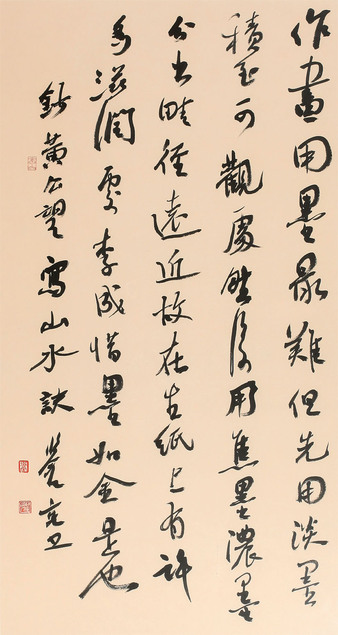 作畫用墨最難但先用淡墨
積至可觀處然後用焦墨濃墨
分出畦徑遠近故在生紙上有許
多滋潤處李成惜墨如金是也
黃公望寫山水訣